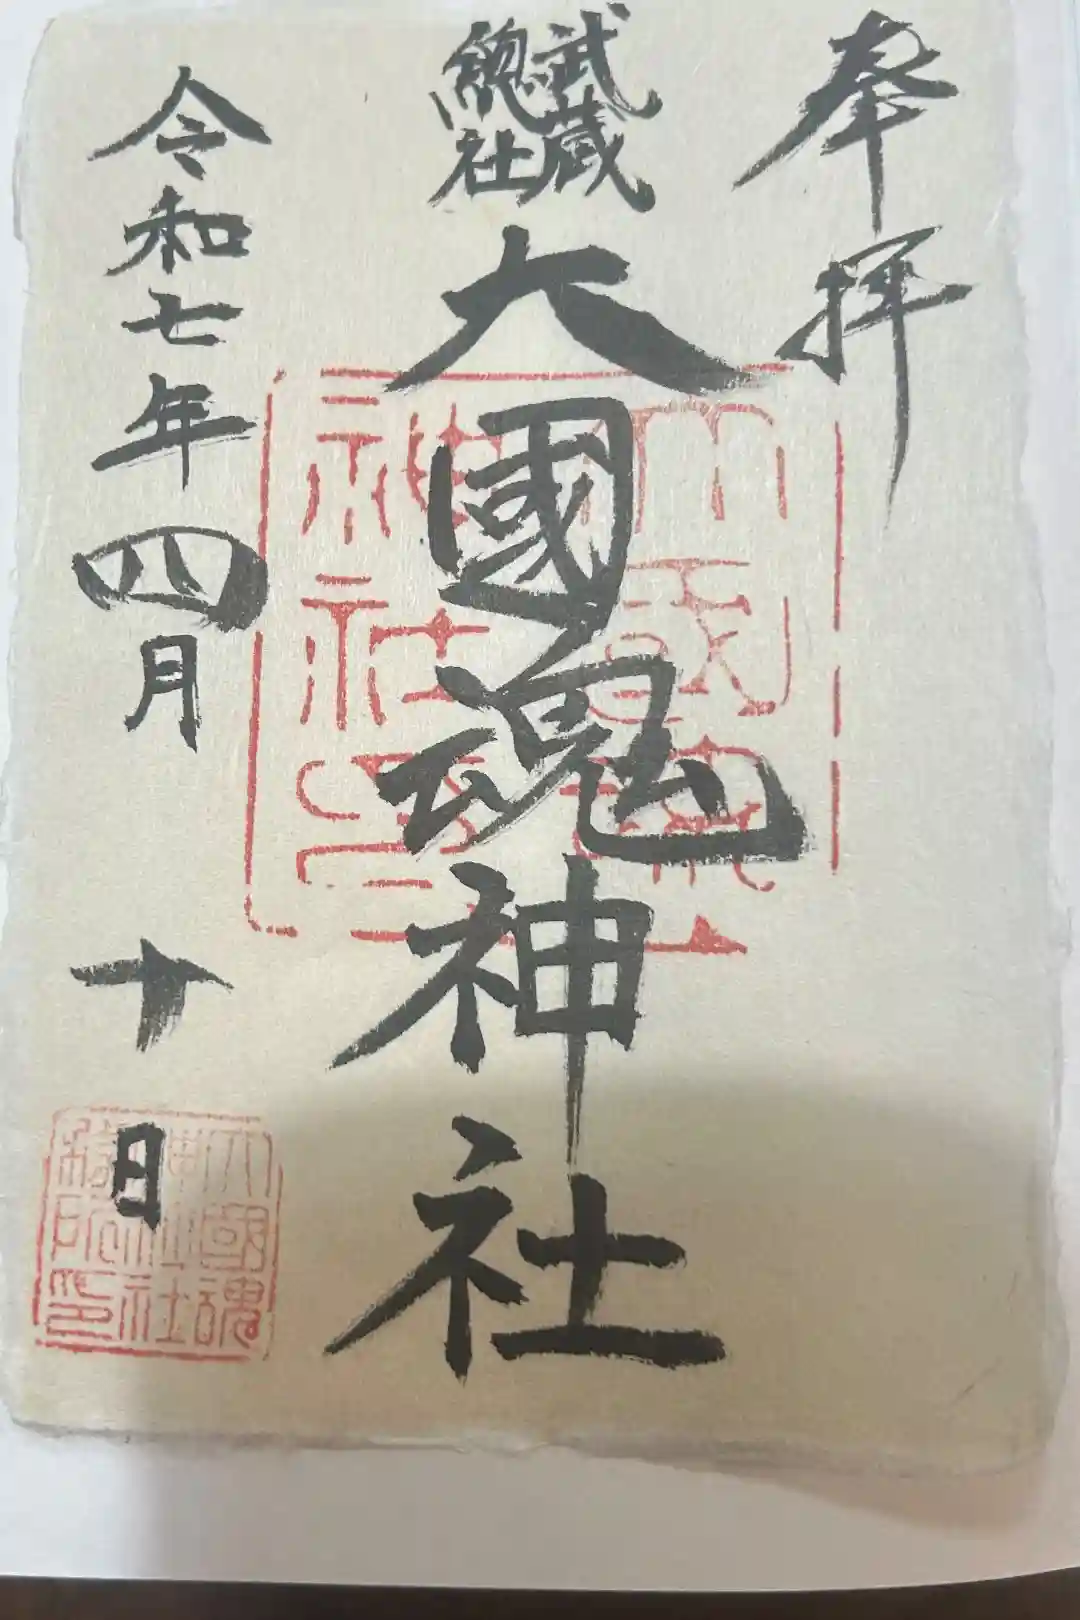 奉拝
武蔵
総社
大國魂神社
令和七年四月十日
大國魂
神社